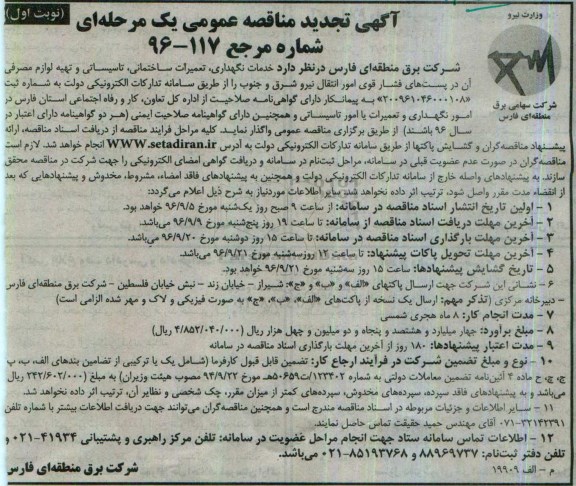 (نوبت اول)
آگهی تجدید مناقصه عمومی یک مرحله‌ای
شماره مرجع ۱۱۷-۹۶
وزارت نیرو
شرکت سهامی برق
منطقه‌ای فارس
شرکت برق منطقه‌ای فارس درنظر دارد خدمات نگهداری، تعمیرات ساختمانی، تاسیساتی و تهیه لوازم مصرفی
آن در پست‌های فشار قوی امور انتقال نیرو شرق و جنوب را از طریق سامانه تدارکات الکترونیکی دولت به شماره ثبت
«۲۰۰۹۶۱۰۴۶۰۰۰۱۰۸» به پیمانکار دارای گواهی‌نامه صلاحیت از اداره کل تعاون، کار و رفاه اجتماعی استان فارس در
امور نگهداری و تعمیرات یا امور تاسیساتی و همچنین دارای گواهینامه صلاحیت ایمنی (هر دو گواهینامه دارای اعتبار در
سال ۹۶ باشند) از طریق برگزاری مناقصه عمومی واگذار نماید. کلیه مراحل فرایند مناقصه از دریافت اسناد مناقصه، ارائه
پیشنهاد مناقصه‌گران و گشایش پاکتها از طریق سامانه تدارکات الکترونیکی دولت به آدرس WWW.setadiran.ir انجام خواهد شد. لازم است
مناقصه‌گران در صورت عدم عضویت قبلی در سامانه، مراحل ثبت‌نام در سامانه و دریافت گواهی امضای الکترونیکی را جهت شرکت در مناقصه محقق
سازند. به پیشنهادهای واصله خارج از سامانه تدارکات الکترونیکی دولت و همچنین به پیشنهادهای فاقد امضاء، مشروط، مخدوش و پیشنهادهایی که بعد
از انقضاء مدت مقرر واصل شود، ترتیب اثر داده نخواهد شد. سایر اطلاعات موردنیاز به شرح ذیل اعلام می‌گردد:
۱ - اولین تاریخ انتشار اسناد مناقصه در سامانه: از ساعت ۹ صبح روز یک‌شنبه مورخ ۹۶/۹/۵ خواهد بود.
۲ - آخرین مهلت دریافت اسناد مناقصه از سامانه: تا ساعت ۱۹ روز پنج‌شنبه مورخ ۹۶/۹/۹ می‌باشد.
۳ - آخرین مهلت بارگذاری اسناد مناقصه در سامانه: تا ساعت ۱۵ روز دوشنبه مورخ ۹۶/۹/۲۰ می‌باشد.
۴ - آخرین مهلت تحویل پاکات پیشنهاد: تا ساعت ۱۲ روز سه‌شنبه مورخ ۹۶/۹/۲۱ می‌باشد.
۵ - تاریخ گشایش پیشنهادها: ساعت ۱۵ روز سه‌شنبه مورخ ۹۶/۹/۲۱ خواهد بود.
۶ - نشانی این شرکت جهت ارسال پاکتهای «الف» و «ب» و «ج»: شیراز - خیابان زند - نبش خیابان فلسطین - شرکت برق منطقه‌ای فارس
- دبیرخانه مرکزی (تذکر مهم: ارسال یک نسخه از پاکت‌های «الف»، «ب»، «ج» به صورت فیزیکی و لاک و مهر شده الزامی است)
۷ - مدت انجام کار: ۸ ماه هجری شمسی
۸ - مبلغ برآورد: چهار میلیارد و هشتصد و پنجاه و دو میلیون و چهل هزار ریال (۴/۸۵۲/۰۴۰/۰۰۰) ریال
۹ - مدت اعتبار پیشنهادها: ۱۸۰ روز از آخرین مهلت بارگذاری اسناد مناقصه در سامانه
۱۰ - نوع و مبلغ تضمین شرکت در فرآیند ارجاع کار: تضمین قابل قبول کارفرما (شامل یک یا ترکیبی از تضامین بندهای الف، ب، پ
ج، چ، ح ماده ۴ آئین‌نامه تضمین معاملات دولتی به شماره ۱۲۳۴۰۲/ت۵۰۶۵۹هـ مورخ ۹۴/۹/۲۲ مصوب هیئت وزیران) به مبلغ (۲۴۲/۶۰۲/۰۰۰) ریال
می‌باشد و به پیشنهادهای فاقد سپرده، سپرده‌های مخدوش، سپرده‌های کمتر از میزان مقرر، چک شخصی و نظایر آن، ترتیب اثر داده نخواهد شد.
۱۱ - سایر اطلاعات و جزئیات مربوطه در اسناد مناقصه مندرج است و همچنین مناقصه‌گران می‌توانند جهت دریافت اطلاعات بیشتر با شماره تلفن
۳۲۱۴۲۳۹۱-۰۷۱ آقای مهندس حمید حقیقت تماس حاصل نمایند.
۱۲ - اطلاعات تماس سامانه ستاد جهت انجام مراحل عضویت در سامانه: تلفن مرکز راهبری و پشتیبانی ۴۱۹۳۴-۰۲۱ و
تلفن دفتر ثبت‌نام: ۸۸۹۶۹۷۳۷ و ۸۵۱۹۳۷۶۸-۰۲۱ می‌باشد.
م - الف ۱۹۹۰۹
شرکت برق منطقه‌ای فارس